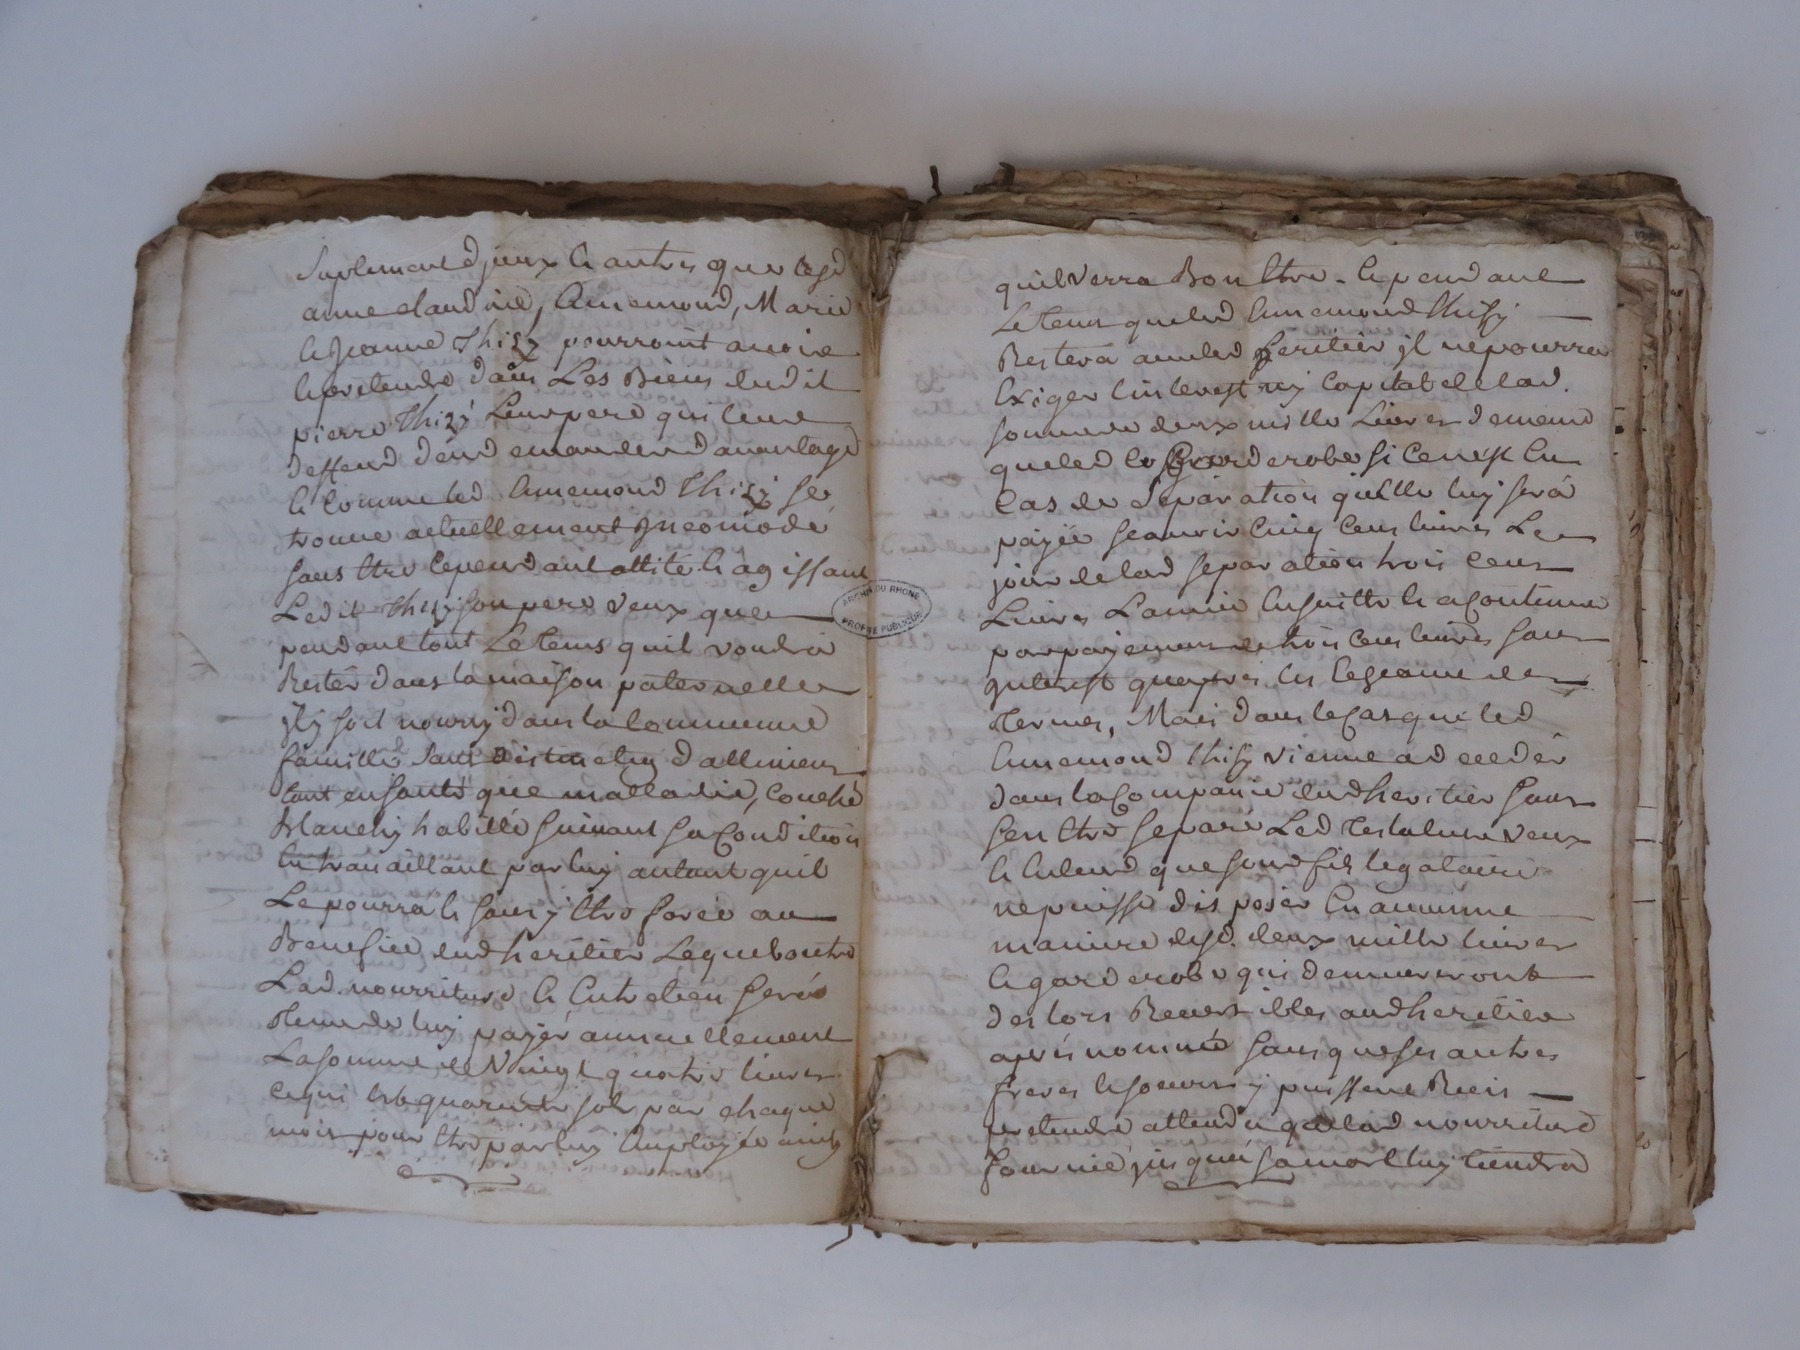 Suplement d'jceux & autres que lesd
anne claudine, Annemond, Marie
& Jeanne Thizy pourroint avoir
& pretendre dans Les Biens dudit
pierre Thizy Leur pere qui leur
deffend d'en demander d'avantage
& comme led Annemond Thizy se
trouve actuellement Jncomodé
sans etre cependant allité & agissant
Ledit Thizy son pere veux que
pendant tout Le tems quil voudra
Rester dans la maison paternelle
jl y soit nourry dans la commune
famille sans distinction d'allimens
tant en santé que malladie, couché
blanchy habillé suivant sa Condition
en travaillant par luy autant quil
Le pourra & sans y etre forcé au
Benefice dud heritier Lequel outre
Lad. nourriture & Entretien sera
tenu de luy payer annuellement
La somme de Vingt quatre livres
ce qui est quarante sols par chaque
mois pour etre par luy Employée ainsy
ARCH. DU RHONE
PROPTE PUBLIQUE
quil verra Bon etre. & pendant
Le tems que led Annemond Thisy
Restera avec led heritier jl ne pourra
Exiger l'interest ny Capital de lad.
somme de deux mille Livres de meme
que led Garderobe si ce n'est En
Cas de Separation qu'elle luy sera
payée scavoir Cinq Cens livres Le
jour de lad separation trois Cens
Livres L'année Ensuitte & a Continuer
par payemens de trois Cens livres sans
jnterest qu'apres les Echeance des
termes, Mais dans le Cas que led
Annemond Thisy vienne a deceder
dans la Compagnie dud heritier sans
s'en etre separé Led Testateur veux
& Entend que sond fils legataire
ne puisse disposer En aucune
maniere desd. deux mille livres
& garderobe qui demeureront
des lors Reversibles aud heritier
après nommé sans que ses autres
freres & soeurs y puissent Rien
pretendre attendu que lad nourriture
fournie jusqu'a sa mort luy tiendra